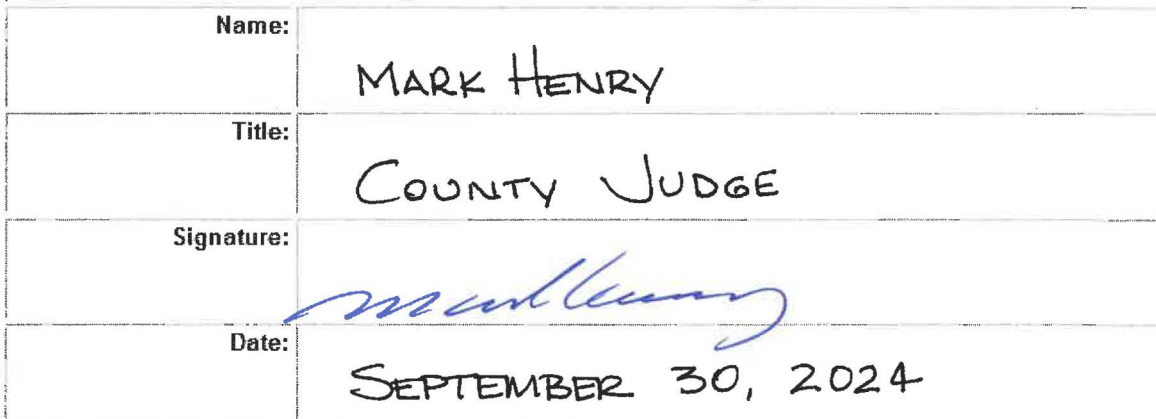 Name: MARK HENRY
Title: COUNTY JUDGE
Signature: Mark Henry
Date: SEPTEMBER 30, 2024